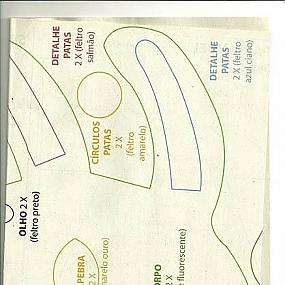 DETALHE
PATAS
2 X (feltro
salmão)
DETALHE
PATAS
2 X (feltro
azul ciano)
CÍRCULOS
PATAS
2 X
(feltro
amarelo)
OLHO 2 X
(feltro preto)
PEBRA
2 X
marelo ouro)
ORPO
2 X
fluorescente)